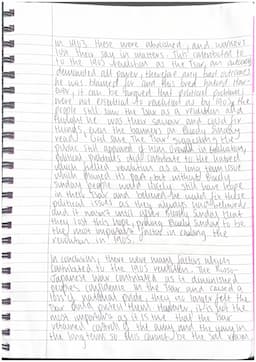 In 1903 these were abolished, and workers
lost their say in matters. This contributed to
to the 1905 revolution as the Tsar, an autocrat
demanded all power, therefore any bad outcomes
he was blamed for and this bred hatred. How-
ever, it can be argued that political problems
were not essential to revolution as by 1905 the
people still saw the Tsar as a
thought he was their saviour and cared for
them, even the banners on Bloody Sunday
read 'God Save the Tsar' suggesting the
public still approved of him overall. In conclusion,
political problems did contribute to the unrest
which fuelled revolution as a long term issue
which played its part, but without Bloody
Sunday people would likely still have hope
in their Tsar and believed he would fix these
political issues as they always
and it wasn't until after Bloody Sunday that
they lost this hope, proving Bloody Sunday to be
the most important factor in causing the
revolution in 1905.
In conclusion, there were many factors which
contributed to the 1905 revolution. The Russo-
Japanese war contributed as it diminished
peoples confidence in the Tsar and caused a
loss of national pride, they no longer felt the
Tsar could protect them. However, it is not the
most important as it is true that the Tsar
retained control of the army and the army in
the long term so this cannot be the